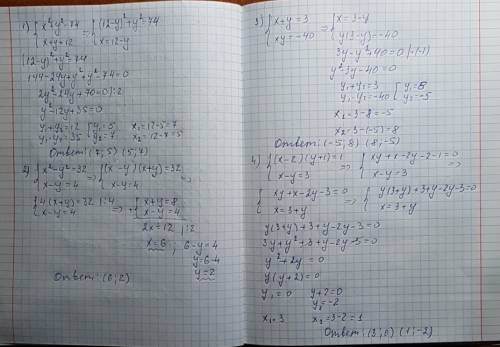 1) { x²+y²=74 { (12-y)²+y²=74
x+y=12 x=12-y
(12-y)²+y²=74
144-24y+y²+y²-74=0
2y²-24y+70=0 |:2
y²-12y+35=0
y₁+y₂=12 [ y₁=5 x₁=12-5=7
y₁·y₂=35 y₂=7 x₂=12-7=5
Ответ: (7;5) (5;7)
2) { x²-y²=32 ⇒ { (x-y)(x+y)=32 ⇒
x-y=4 x-y=4
{ 4(x+y)=32 |:4 ⇒ { x+y=8
x-y=4 x-y=4
2x=12 |:2
x=6, 6-y=4
y=6-4
y=2
Ответ: (6;2)
3) { x+y=3 ⇒ { x=3-y
xy=-40 y(3-y)=-40
3y-y²+40=0 |·(-1)
y²-3y-40=0
y₁+y₂=3 [ y₁=8
y₁·y₂=-40 y₂=-5
x₁=3-8=-5
x₂=3-(-5)=8
Ответ: (-5;8) (8;-5)
4) { (x-2)(y+1)=1 ⇒ { xy+x-2y-2-1=0 ⇒
x-y=3 x-y=3
{ xy+x-2y-3=0 ⇒ { y(3+y)+3+y-2y-3=0
x=3+y x=3+y
y(3+y)+3+y-2y-3=0
3y+y²+3+y-2y-3=0
y²+2y=0
y(y+2)=0
y₁=0 y+2=0
y₂=-2
x₁=3 x₂=3-2=1
Ответ: (3;0) (1;-2)